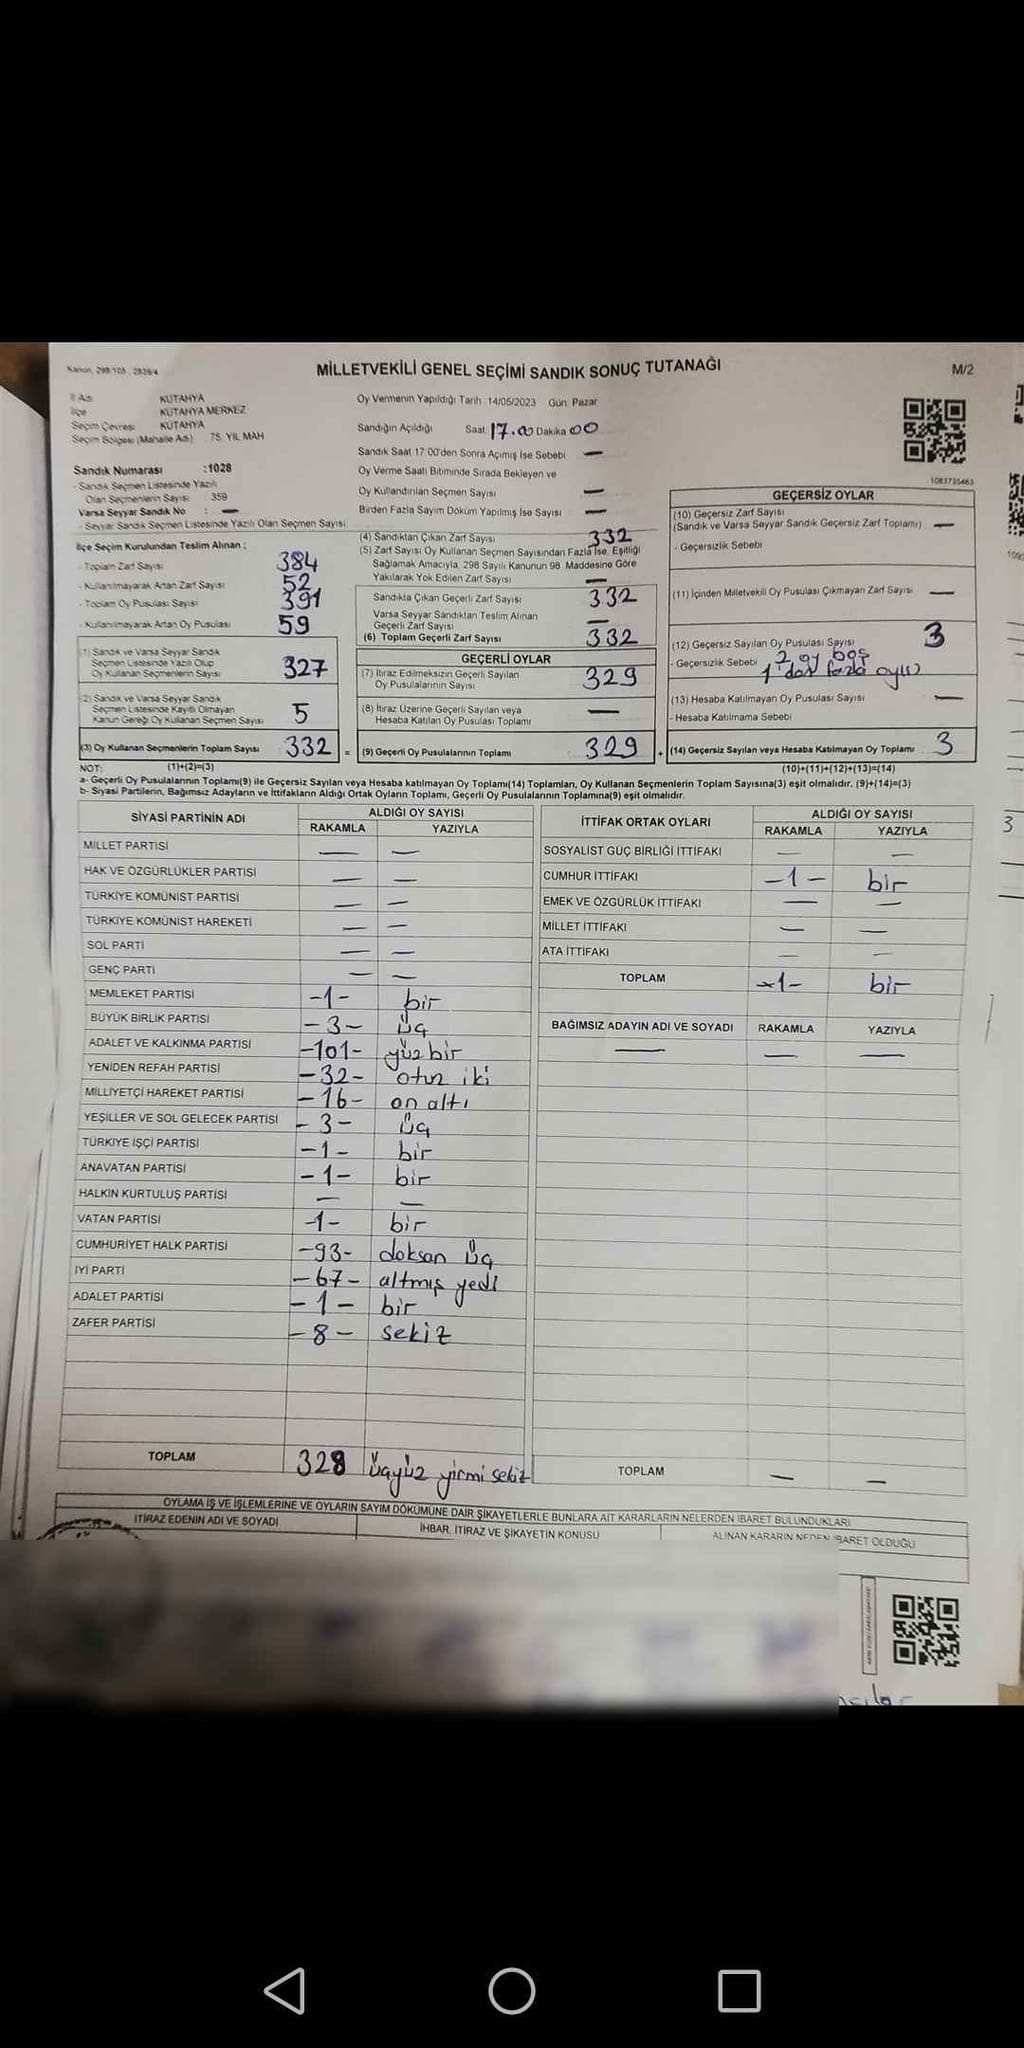 Kanun, 298/105 , 2839/4
MİLLETVEKİLİ GENEL SEÇİMİ SANDIK SONUÇ TUTANAĞI
M/2
İl Adı KÜTAHYA
İlçe KÜTAHYA MERKEZ
Seçim Çevresi KÜTAHYA
Seçim Bölgesi (Mahalle Adı) 75. YIL MAH
Sandık Numarası :1028
- Sandık Seçmen Listesinde Yazılı
Olan Seçmenlerin Sayısı : 359
Varsa Seyyar Sandık No : —
- Seyyar Sandık Seçmen Listesinde Yazılı Olan Seçmen Sayısı
Oy Vermenin Yapıldığı Tarih :14/05/2023 Gün: Pazar
Sandığın Açıldığı Saat 17.00 Dakika 00
Sandık Saat 17 00'den Sonra Açımış İse Sebebi —
Oy Verme Saati Bitiminde Sırada Bekleyen ve
Oy Kullandırılan Seçmen Sayısı —
Birden Fazla Sayım Döküm Yapılmış İse Sayısı —
1083735463
İlçe Seçim Kurulundan Teslim Alınan ;
- Toplam Zarf Sayısı 384
- Kullanılmayarak Artan Zarf Sayısı 52
- Toplam Oy Pusulası Sayısı 391
- Kullanılmayarak Artan Oy Pusulası 59
(1) Sandık ve Varsa Seyyar Sandık
Seçmen Listesinde Yazılı Olup
Oy Kullanan Seçmenlerin Sayısı 327
(2) Sandık ve Varsa Seyyar Sandık
Seçmen Listesinde Kayıtlı Olmayan
Kanun Gereği Oy Kullanan Seçmen Sayısı 5
(3) Oy Kullanan Seçmenlerin Toplam Sayısı 332 =
(4) Sandıktan Çıkan Zarf Sayısı 332
(5) Zarf Sayısı Oy Kullanan Seçmen Sayısından Fazla İse, Eşitliği
Sağlamak Amacıyla, 298 Sayılı Kanunun 98. Maddesine Göre
Yakılarak Yok Edilen Zarf Sayısı —
Sandıkta Çıkan Geçerli Zarf Sayısı 332
Varsa Seyyar Sandıktan Teslim Alınan
Geçerli Zarf Sayısı —
(6) Toplam Geçerli Zarf Sayısı 332
GEÇERLİ OYLAR
(7) İtiraz Edilmeksizin Geçerli Sayılan
Oy Pusulalarının Sayısı 329
(8) İtiraz Üzerine Geçerli Sayılan veya
Hesaba Katılan Oy Pusulası Toplamı —
(9) Geçerli Oy Pusulalarının Toplamı 329 +
GEÇERSİZ OYLAR
(10) Geçersiz Zarf Sayısı
(Sandık ve Varsa Seyyar Sandık Geçersiz Zarf Toplamı) —
- Geçersizlik Sebebi
(11) İçinden Milletvekili Oy Pusulası Çıkmayan Zarf Sayısı —
(12) Geçersiz Sayılan Oy Pusulası Sayısı 3
- Geçersizlik Sebebi 2 oy boş
1 'den fazla
(13) Hesaba Katılmayan Oy Pusulası Sayısı —
- Hesaba Katılmama Sebebi
(14) Geçersiz Sayılan veya Hesaba Katılmayan Oy Toplamı 3
NOT: (1)+(2)=(3)
(10)+(11)+(12)+(13)=(14)
a- Geçerli Oy Pusulalarının Toplamı(9) ile Geçersiz Sayılan veya Hesaba katılmayan Oy Toplamı(14) Toplamları, Oy Kullanan Seçmenlerin Toplam Sayısına(3) eşit olmalıdır. (9)+(14)=(3)
b- Siyasi Partilerin, Bağımsız Adayların ve İttifakların Aldığı Ortak Oyların Toplamı, Geçerli Oy Pusulalarının Toplamına(9) eşit olmalıdır.
SİYASİ PARTİNİN ADI ALDIĞI OY SAYISI
RAKAMLA YAZIYLA
MİLLET PARTİSİ — —
HAK VE ÖZGÜRLÜKLER PARTİSİ — —
TÜRKİYE KOMÜNİST PARTİSİ — —
TÜRKİYE KOMÜNİST HAREKETİ — —
SOL PARTİ — —
GENÇ PARTİ — —
MEMLEKET PARTİSİ -1- bir
BÜYÜK BİRLİK PARTİSİ -3- üç
ADALET VE KALKINMA PARTİSİ -101- yüz bir
YENİDEN REFAH PARTİSİ -32- otuz iki
MİLLİYETÇİ HAREKET PARTİSİ -16- on altı
YEŞİLLER VE SOL GELECEK PARTİSİ -3- üç
TÜRKİYE İŞÇİ PARTİSİ -1- bir
ANAVATAN PARTİSİ -1- bir
HALKIN KURTULUŞ PARTİSİ — —
VATAN PARTİSİ -1- bir
CUMHURİYET HALK PARTİSİ -93- doksan üç
İYİ PARTİ -67- altmış yedi
ADALET PARTİSİ -1- bir
ZAFER PARTİSİ -8- sekiz
TOPLAM 328 üçyüz yirmi sekiz
İTTİFAK ORTAK OYLARI ALDIĞI OY SAYISI
RAKAMLA YAZIYLA
SOSYALİST GÜÇ BİRLİĞİ İTTİFAKI — —
CUMHUR İTTİFAKI -1- bir
EMEK VE ÖZGÜRLÜK İTTİFAKI — —
MİLLET İTTİFAKI — —
ATA İTTİFAKI — —
TOPLAM -1- bir
BAĞIMSIZ ADAYIN ADI VE SOYADI RAKAMLA YAZIYLA
— — —
TOPLAM — —
3
OYLAMA İŞ VE İŞLEMLERİNE VE OYLARIN SAYIM DÖKÜMÜNE DAİR ŞİKAYETLERLE BUNLARA AİT KARARLARIN NELERDEN İBARET BULUNDUKLARI
İTİRAZ EDENİN ADI VE SOYADI İHBAR, İTİRAZ VE ŞİKAYETİN KONUSU ALINAN KARARIN NEDEN İBARET OLDUĞU